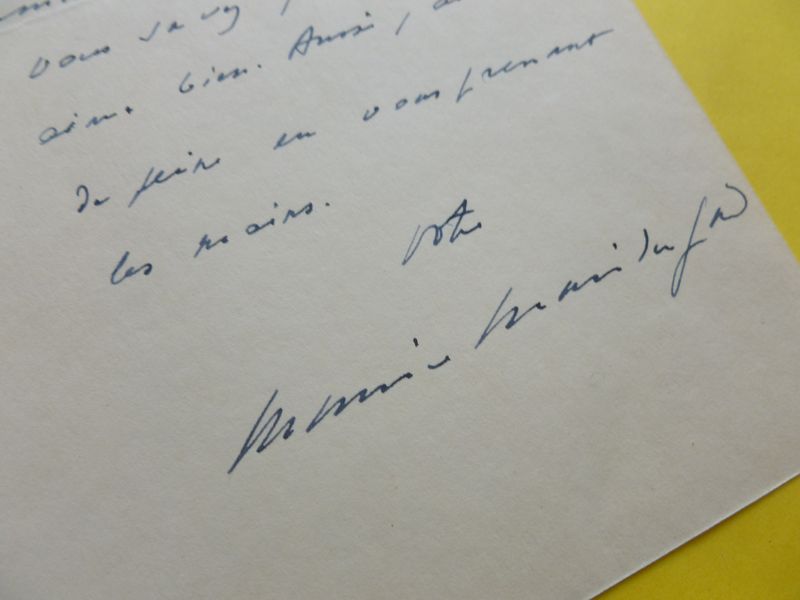 vous savez
aime bien. Aussi,
de faire en vous prenant
les mains.
Votre
Maurice Martin du Gard